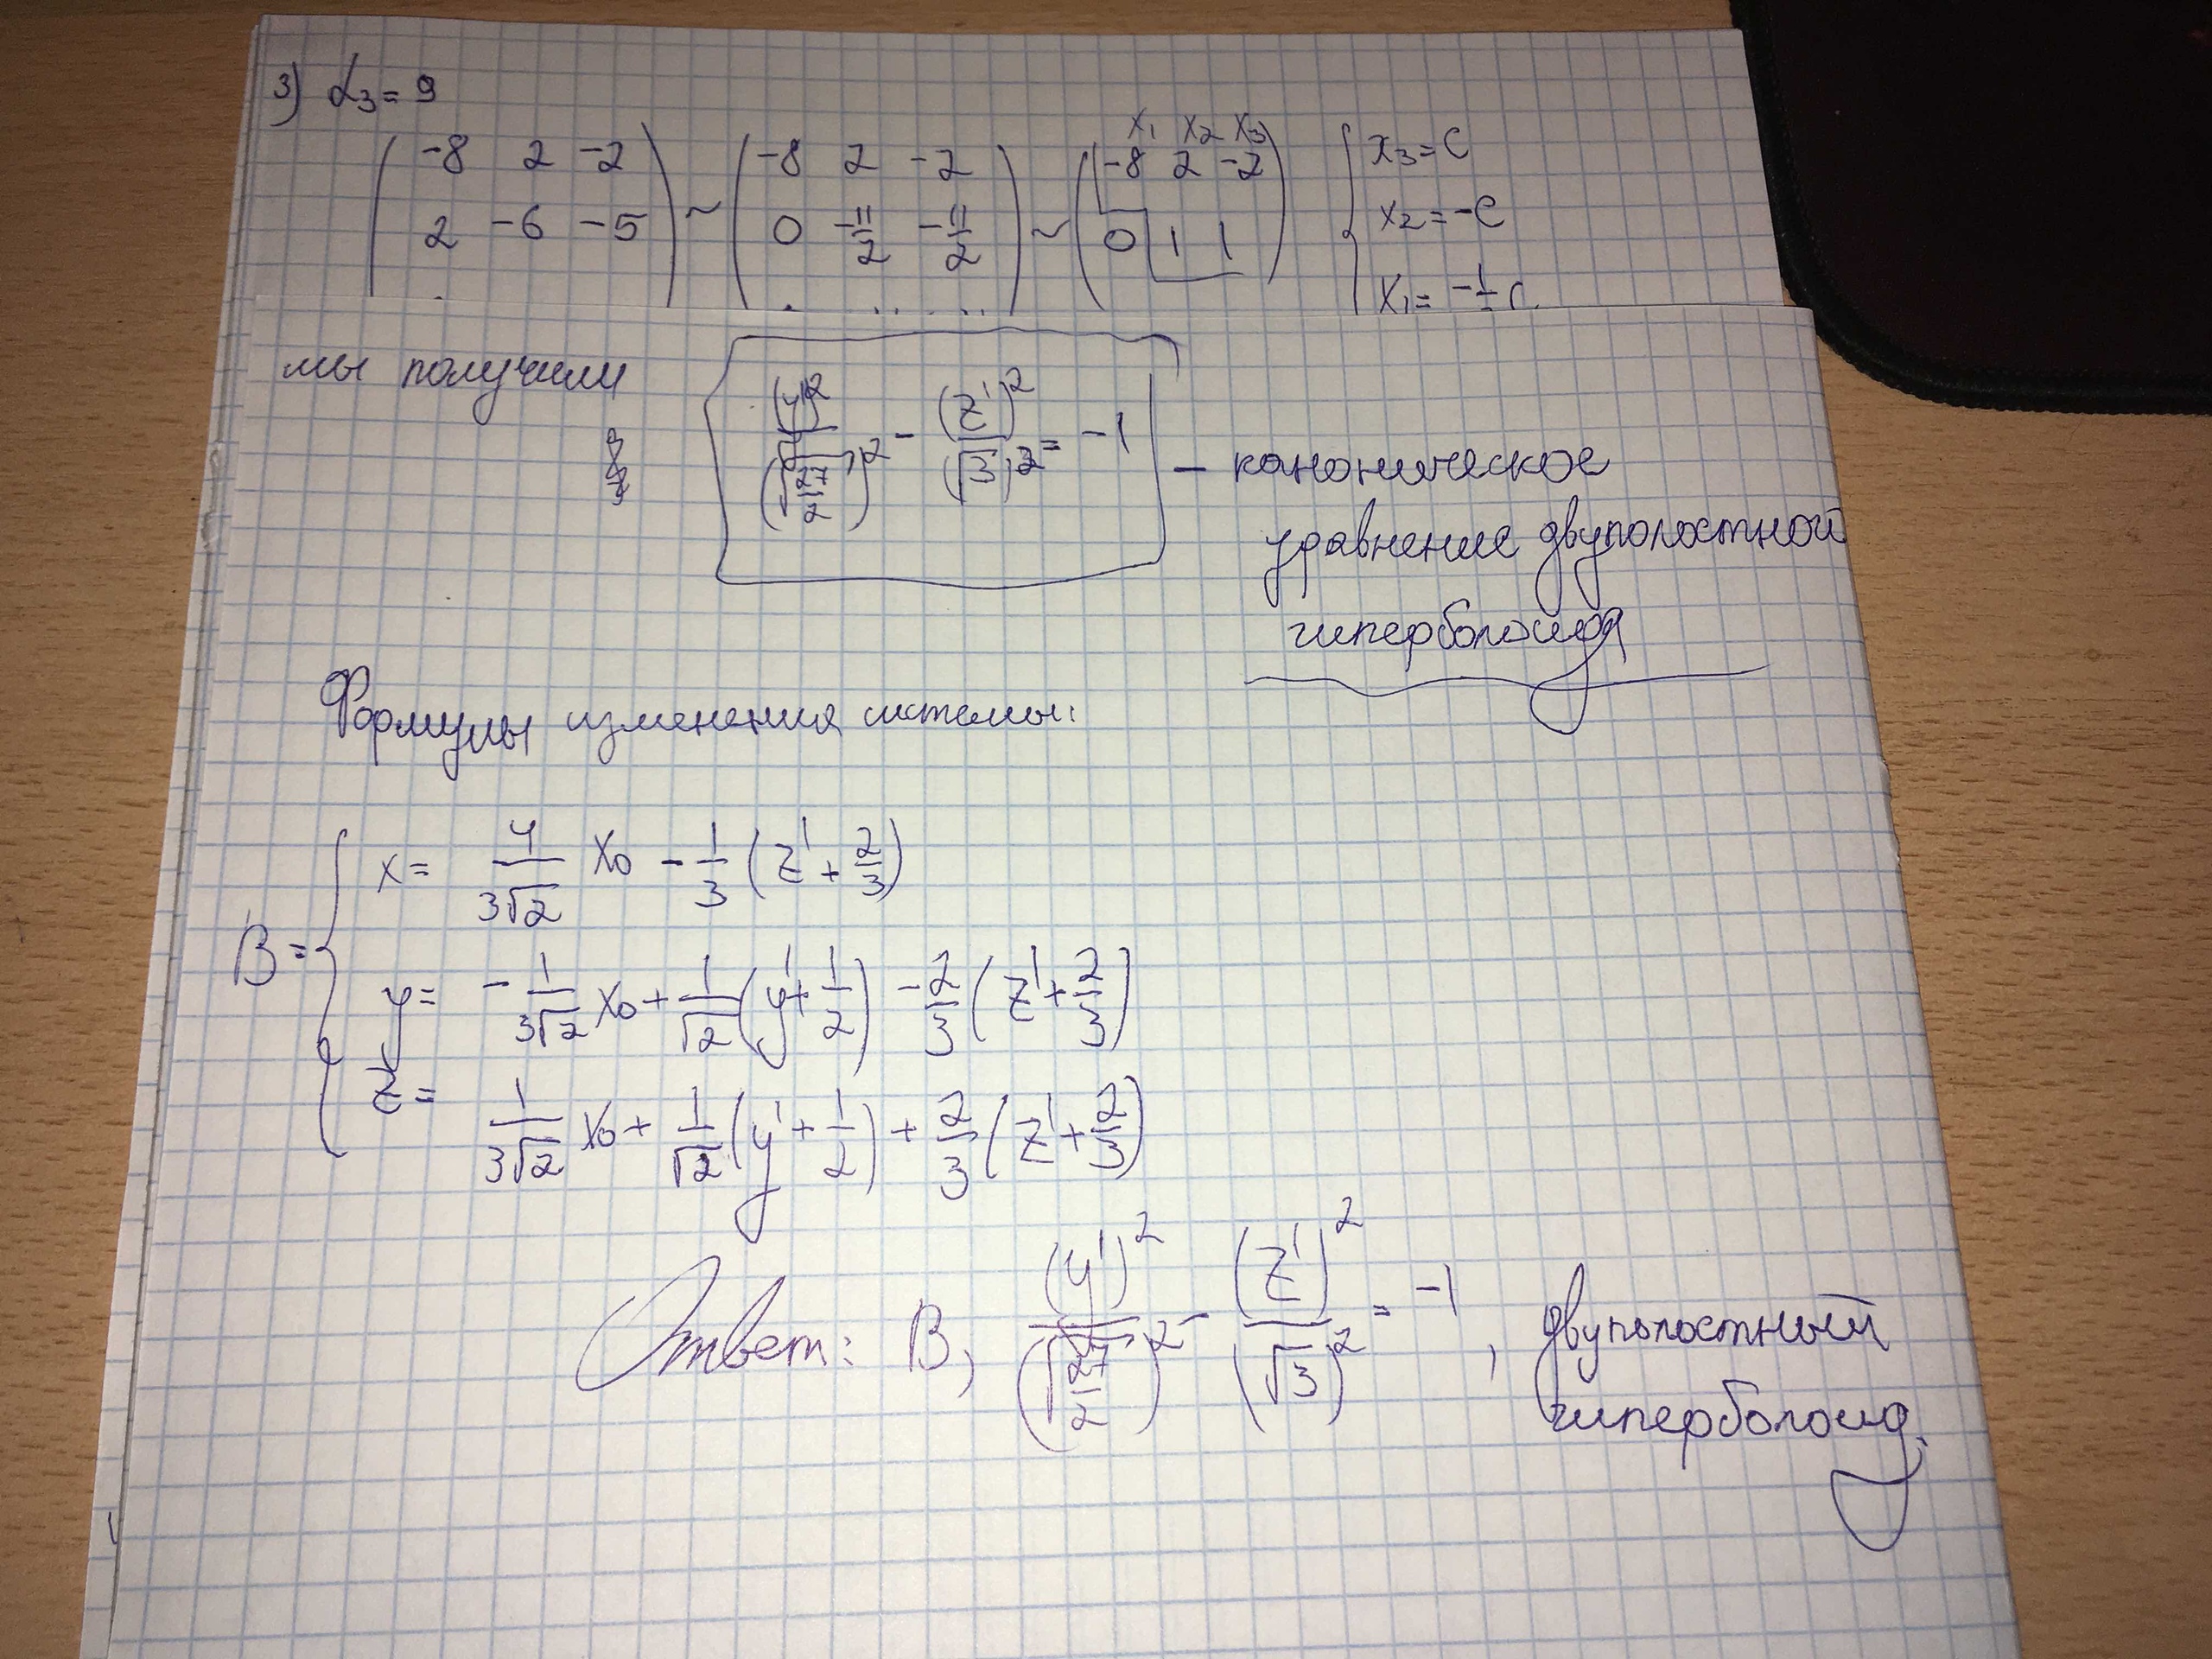 3) α₃ = 9
x₁ x₂ x₃
( -8 2 -2 ) ~ ( -8 2 -2 ) ~ ( -8 2 -2 ) { x₃ = C
( 2 -6 -5 ) ( 0 -11/2 -11/2 ) ( 0 1 1 ) x₂ = -C
x₁ =
мы получили (y')²/(√(27/2))² - (z')²/(√3)² = -1 - каноническое
уравнение двуполостной
гиперболоида
Формулы изменения системы:
B = { x = 4/(3√2) x₀ - 1/3 (z' + 2/3)
y = -1/(3√2) x₀ + 1/√2 (y' + 1/2) - 2/3 (z' + 2/3)
z = 1/(3√2) x₀ + 1/√2 (y' + 1/2) + 2/3 (z' + 2/3)
Ответ: B, (y')²/(√(27/2))² - (z')²/(√3)² = -1, двуполостный
гиперболоид.